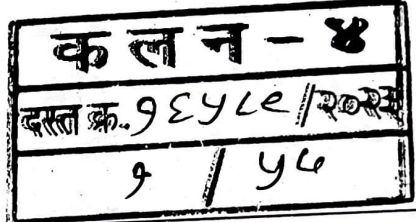 कलन - ४
दस्त क्र. १६५८९/२०२३
१ / ५८